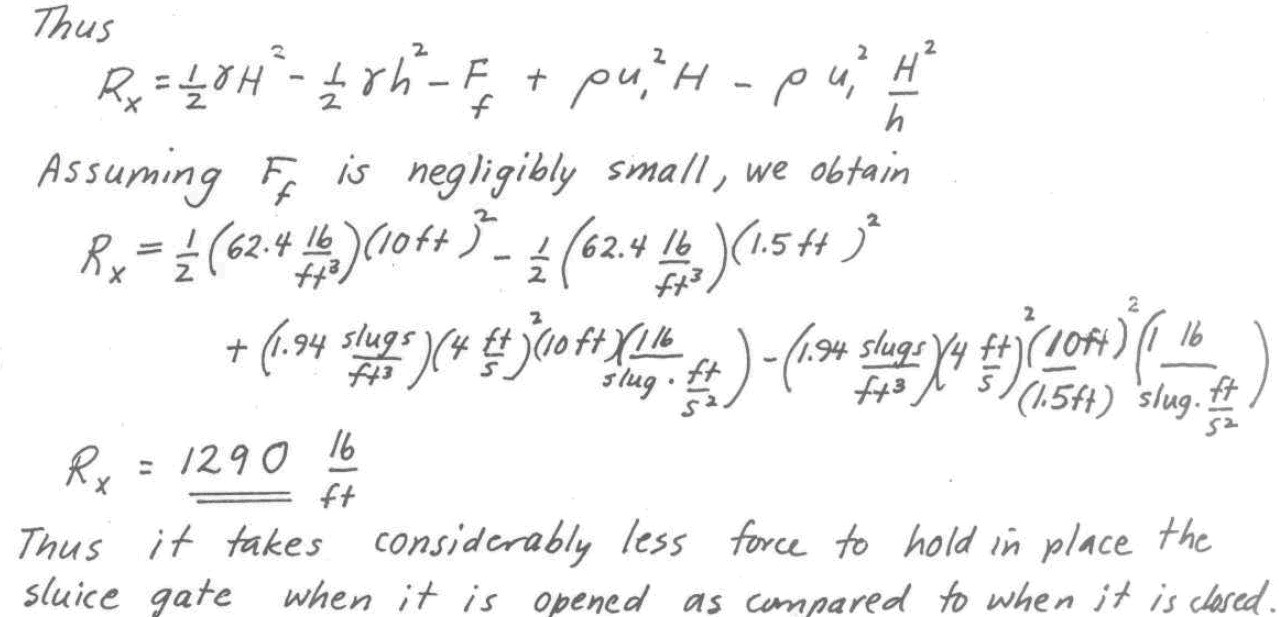 Thus
R_x = 1/2 γH² - 1/2 γh² - F_f + ρu₁²H - ρu₁² H²/h
Assuming F_f is negligibly small, we obtain
R_x = 1/2 (62.4 lb/ft³)(10ft)² - 1/2 (62.4 lb/ft³)(1.5 ft)²
+ (1.94 slugs/ft³)(4 ft/s)²(10 ft)(1 lb/slug · ft/s²) - (1.94 slugs/ft³)(4 ft/s)² (10ft)²/(1.5ft) (1 lb/slug. ft/s²)
R_x = 1290 lb/ft
Thus it takes considerably less force to hold in place the
sluice gate when it is opened as compared to when it is closed.